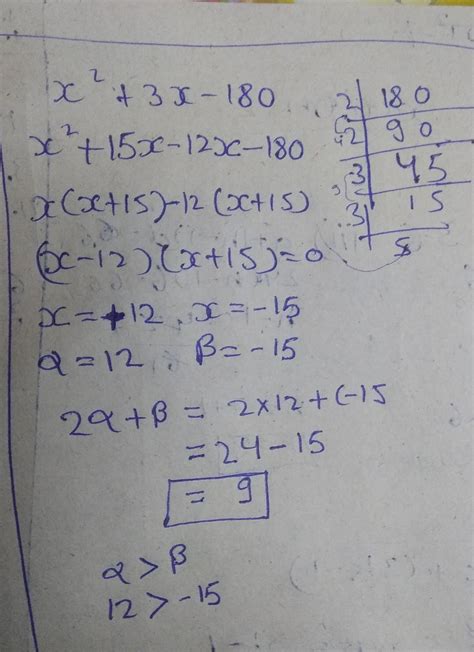 x² + 3x - 180
x² + 15x - 12x - 180
x(x+15) - 12(x+15)
(x-12) (x+15) = 0
x = +12 x = -15
α = 12 β = -15
2α + β = 2×12 + (-15
= 24 - 15
= 9
α > β
12 > -15
2 180
2 90
3 45
3 15
5